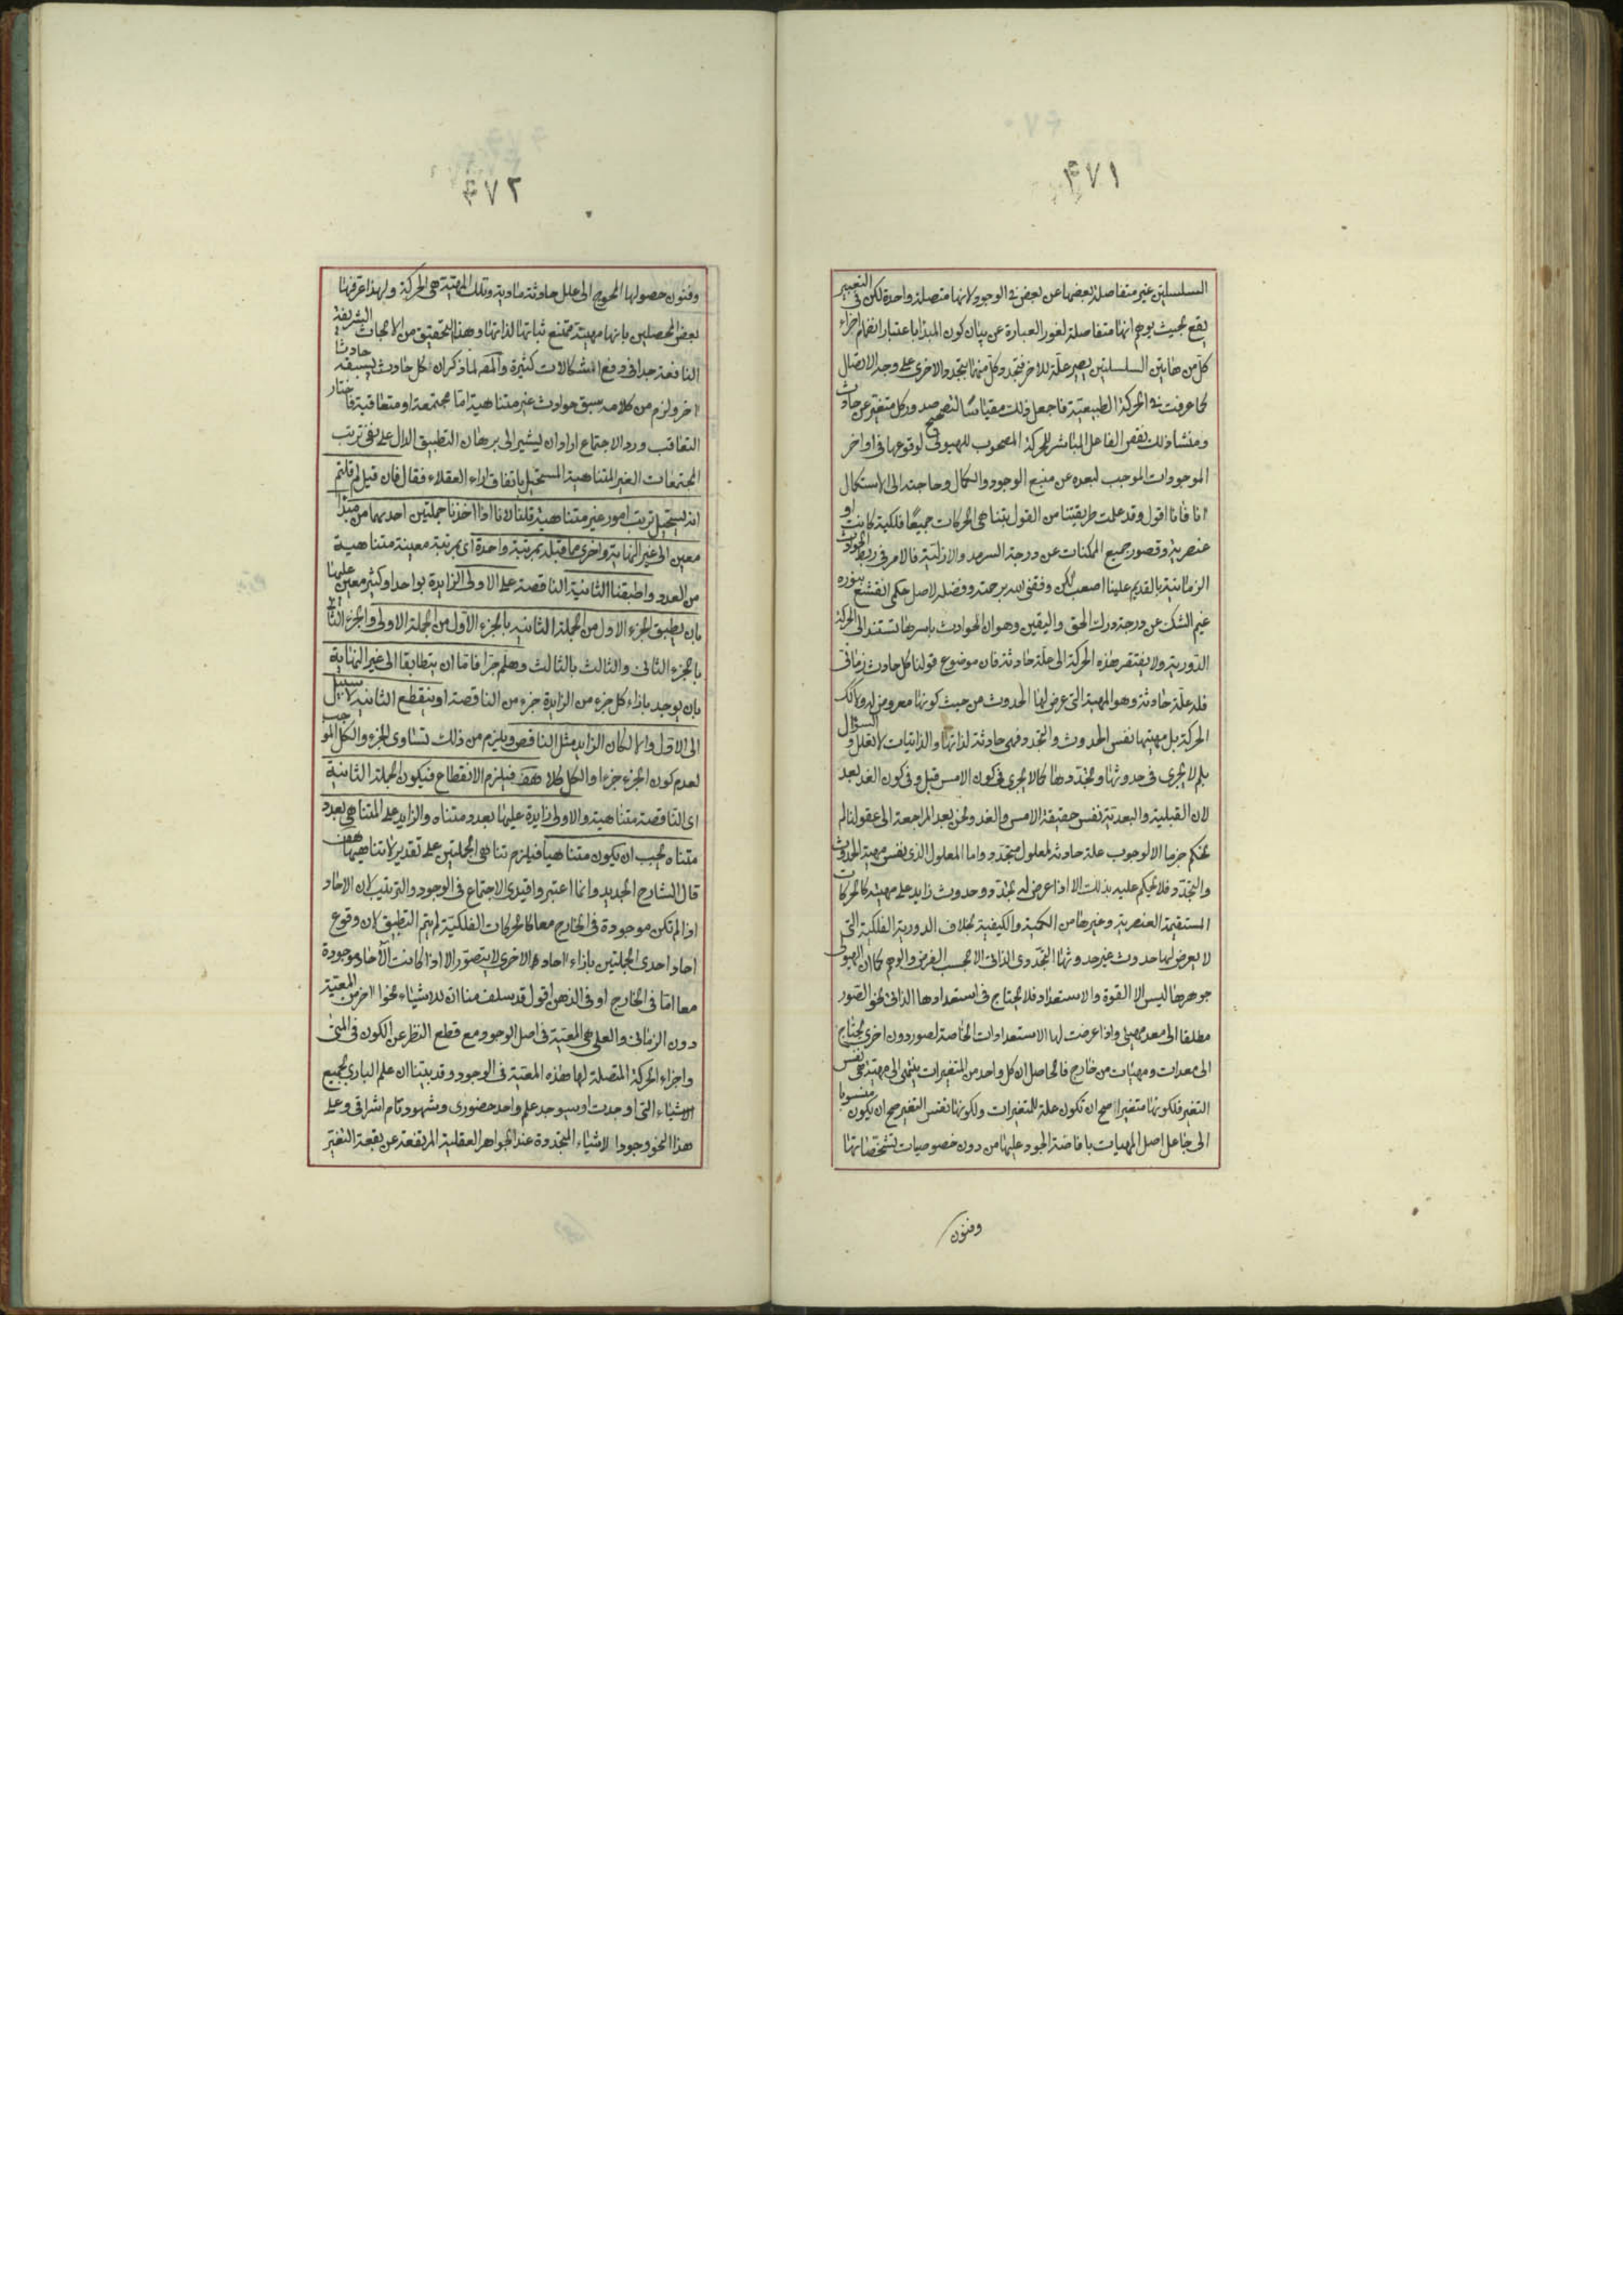 ٤٧١
السلسلتين غير متفاصلة بعضها عن بعض فى الوجود لانها متصلة واحدة لكن فى التعبير
يقع بحيث يوهم انها متفاصلة لغور العبارة عن بيان كون المبدا باعتبار انضمام اجزاء
كل من هاتين السلسلتين يصير علة للاخر فتجدد كل منهما بتجدد الاخرى على وجه الاتصال
كما عرفت فى الحركة الطبيعية فاجعل ذلك مقياسا لتصحيح صدور كل متغير عن حادث
ومنشاء ذلك نقص الفاعل المباشر للحركة المصحوب للهيولى لوقوعها فى اواخر
الموجودات الموجب لبعده عن منبع الوجود والكمال وحاجته الى الاستكمال
انا فانا اقول وقد علمت طريقتنا من القول بتناهى الحركات جميعا فلكية كانت او
عنصرية وقصور جميع الممكنات عن درجة السرمد والازلية فالامر فى ربط الحوادث
الزمانية بالقديم علينا اصعب لكن وفقنى الله برحمته وفضله لاصل حكمى انقشع بنوره
غيم الشك عن درجة درك الحق واليقين وهو ان الحوادث باسرها تستند الى الحركة
الدورية ولا يفتقر هذه الحركة الى علة حادثة فان موضوع قولنا كل حادث زمانى
فله علة حادثة وهو المهية التى عرض لها الحدوث من حيث كونها معروض له ولا كك
الحركة بل مهيتها نفس الحدوث والتجدد فهى حادثة لذاتها والذاتيات لا تعلل والسؤال
بلم لا يجرى فى حدوثها وتجددها كما لا يجرى فى كون الامس قبل وفى كون الغد بعد
لان القبلية والبعدية نفس حقيقة الامس والغد ونحن بعد المراجعة الى عقولنا لم
نحكم جزما الا لوجوب علة حادثة لمعلول متجدد واما المعلول الذى نفس مهيته الحدوث
والتجدد فلا نحكم عليه بذلك الا اذا عرض له تجدد وحدوث زايد على مهيته كالحركات
المستقيمة العنصرية وغيرها من الكمية والكيفية بخلاف الدورية الفلكية التى
لا يعرض لها حدوث غير حدوثها التجددى الذاتى الا بحسب الفرض والوهم كما ان الهيولى
جوهرها ليس الا القوة والاستعداد فلا يحتاج فى استعدادها الذاتى نحو الصور
مطلقا الى معد مهيئ واذا عرضت لها الاستعدادات الخاصة لصور دون اخرى يحتاج
الى معدات ومهيات من خارج فالحاصل ان كل واحد من المتغيرات ينتهى الى مهية هى نفس
التغير فلكونها متغيرا صح ان تكون علة للمتغيرات ولكونها نفس التغير صح ان يكون منسوبا
الى جاعل اصل المهيات بافاضة الجود عليها من دون خصوصيات تشخصاتها
وفنون
٤٧٢
وفنون حصولها المحوج الى علل حادثة مادية وتلك المهية هى الحركة ولهذا عرفها
بعض المحصلين بانها مهية ممتنع ثباتها لذاتها وهذا التحقيق من الابحاث الشريفة
النافعة جدا فى دفع اشكالات كثيرة والمصـ لما ذكر ان كل حادث يسبقه حادثا
اخر ولزم من كلامه سبق حوادث غير متناهية اما مجتمعة او متعاقبة فاختار
التعاقب ورد الاجتماع اراد ان يشير الى برهان التطبيق الدال على نفى ترتب
المجتمعات الغير المتناهية المستحيل باتفاق اراء العقلاء فقال فان قيل لم قلتم
انه يستحيل ترتب امور غير متناهية قلنا لانا اذا اخذنا جملتين احديهما من مبدا
معين الى غير النهاية واخرى مما قبله بمرتبة واحدة اى بمرتبة معينة متناهية
من العدد واطبقنا الثانية الناقصة على الاولى الزايدة بواحد او كثير معين عليها
بان يطبق الجزء الاول من الجملة الثانية بالجزء الاول من الجملة الاولى والجزء الثانى
بالجزء الثانى والثالث بالثالث وهلم جرا فاما ان يتطابقا الى غير النهاية
بان يوجد بازاء كل جزء من الزايدة جزء من الناقصة او ينقطع الثانية لا سبيل
الى الاول والا لكان الزايد مثل الناقص ويلزم من ذلك تساوى الجزء والكل الموجب
لعدم كون الجزء جزءا والكل كلا هف فيلزم الانقطاع فيكون الجملة الثانية
اى الناقصة متناهية والاولى زايدة عليها بعدد متناه والزايد على المتناهى بعدد
متناه يجب ان يكون متناهيا فيلزم تناهى الجملتين على تقدير لا تناهيهما هف
قال الشارح الجديد وانما اعتبروا قيدى الاجتماع فى الوجود والترتيب لان الاحاد
اذا لم تكن موجودة فى الخارج معا كالحركات الفلكية لم يتم التطبيق لان وقوع
احاد احدى الجملتين بازاء احاد الاخرى لا يتصور الا اذا كانت الآحاد موجودة
معا اما فى الخارج او فى الذهن اقول قد سلف منا ان للاشياء نحوا اخر من المعية
دون الزمانى والعلى هى المعية فى اصل الوجود مع قطع النظر عن الكون فى المتى
واجزاء الحركة المتصلة لها هذه المعية فى الوجود وقد بينا ان علم البارى بجميع
الاشياء التى اوجدت او سيوجد علم واحد حضورى وشهود تام اشراقى وعلى
هذا النحو وجود الاشياء المتجددة عند الجواهر العقلية المرتفعة عن بقعة التغير